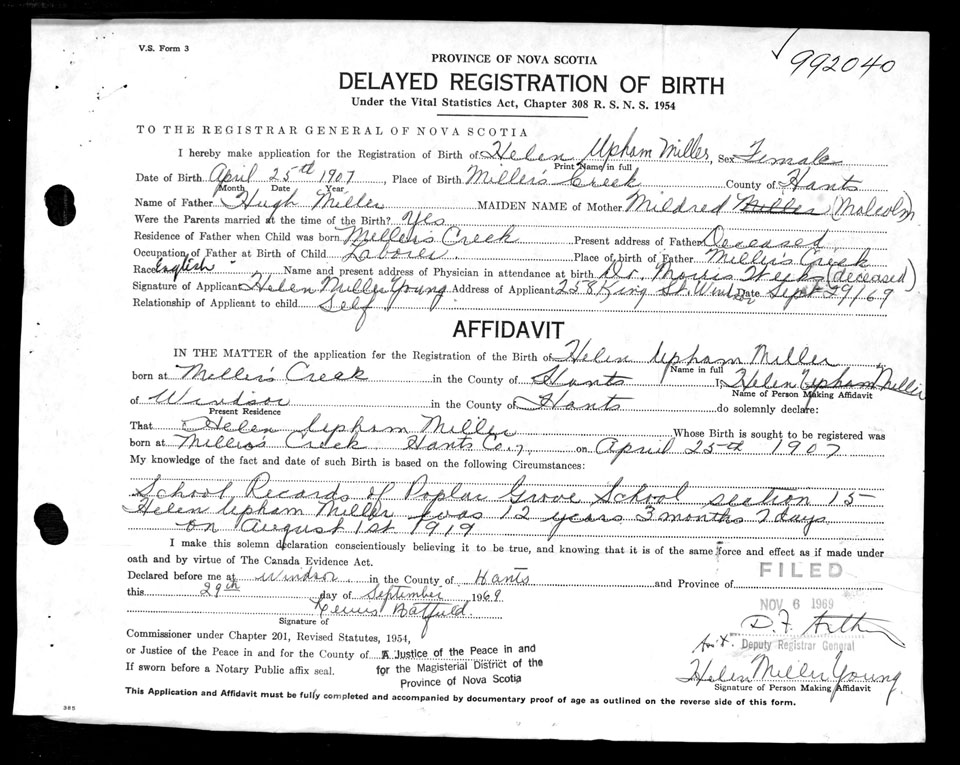 V.S. Form 3
992040
PROVINCE OF NOVA SCOTIA
DELAYED REGISTRATION OF BIRTH
Under the Vital Statistics Act, Chapter 308 R. S. N. S. 1954
TO THE REGISTRAR GENERAL OF NOVA SCOTIA
I hereby make application for the Registration of Birth of Helen Upham Miller, Sex Female
Print Name in full
Date of Birth April 25th 1907, Place of Birth Miller's Creek County of Hants
Month Date Year
Name of Father Hugh Miller MAIDEN NAME of Mother Mildred Miller (Malcolm)
Were the Parents married at the time of the Birth? Yes
Residence of Father when Child was born Miller's Creek Present address of Father Deceased
Occupation of Father at Birth of Child Laborer Place of birth of Father Miller's Creek
Race English Name and present address of Physician in attendance at birth Dr. Morris (deceased)
Signature of Applicant Helen Miller Young Address of Applicant 258 King St. Windsor Date Sept 29/69
Relationship of Applicant to child Self
AFFIDAVIT
IN THE MATTER of the application for the Registration of the Birth of Helen Upham Miller
Name in full
born at Miller's Creek in the County of Hants I, Helen Upham Miller
Name of Person Making Affidavit
of Windsor in the County of Hants do solemnly declare:
Present Residence
That Helen Upham Miller Whose Birth is sought to be registered was
born at Miller's Creek Hants Co., on April 25th 1907
My knowledge of the fact and date of such Birth is based on the following Circumstances:
School Records of Poplar Grove School section 15
Helen Upham Miller was 12 years 3 months 7 days
on August 1st 1919
I make this solemn declaration conscientiously believing it to be true, and knowing that it is of the same force and effect as if made under
oath and by virtue of The Canada Evidence Act.
FILED
Declared before me at Windsor in the County of Hants and Province of
this 29th day of September 1969
NOV 6 1969
Signature of
D. F.
Commissioner under Chapter 201, Revised Statutes, 1954,
Deputy Registrar General
or Justice of the Peace in and for the County of A Justice of the Peace in and
If sworn before a Notary Public affix seal. for the Magisterial District of the
Province of Nova Scotia
Helen Miller Young
Signature of Person Making Affidavit
This Application and Affidavit must be fully completed and accompanied by documentary proof of age as outlined on the reverse side of this form.